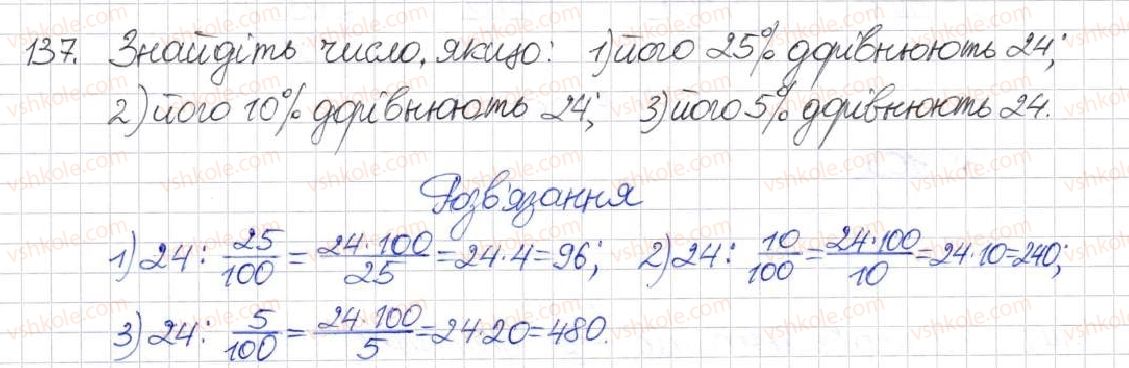 137. Знайдіть число, якщо: 1) його 25% дорівнюють 24;
2) його 10% дорівнюють 24; 3) його 5% дорівнюють 24.
Розв'язання
1) 24 : 25/100 = 24·100/25 = 24·4 = 96; 2) 24 : 10/100 = 24·100/10 = 24·10 = 240;
3) 24 : 5/100 = 24·100/5 = 24·20 = 480.
vshkole.com